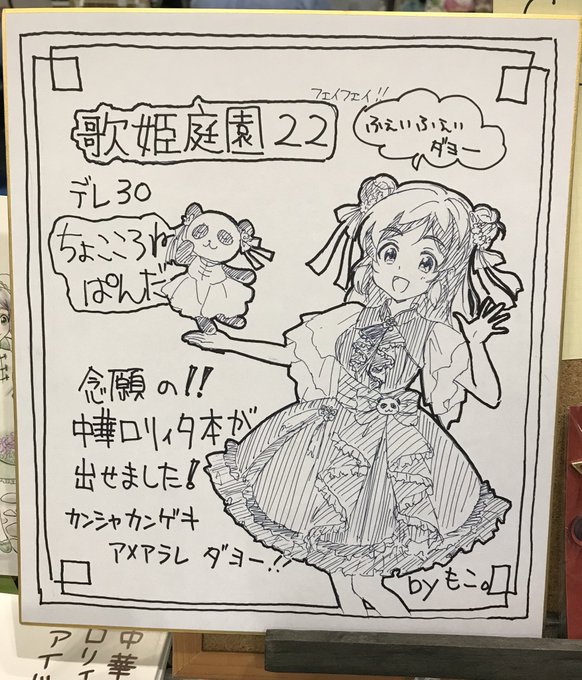 歌姫庭園22
フェイフェイ!!
ふぇいふぇい
ダヨー
デレ30
ちょこころね
ぱんだ
念願の!!
中華ロリィタ本が
出せました!
カンシャカンゲキ
アメアラレ ダヨー!!
by もこ。
中華
ロリィ
アイ